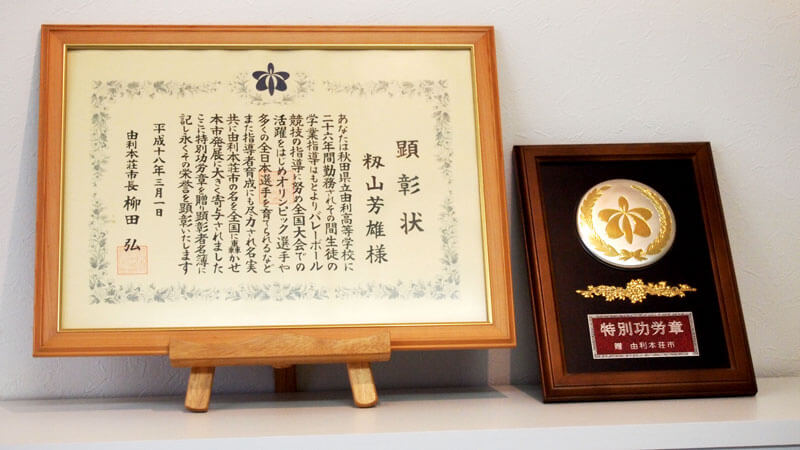 顕彰状
籾山芳雄様
あなたは秋田県立由利高等学校に
二十六年間勤務されその間生徒の
学業指導はもとよりバレーボール
競技の指導に努め全国大会での
活躍をはじめオリンピック選手や
多くの全日本選手を育てられるなど
また指導者育成にも尽力され名実
共に由利本荘市の名を全国に轟かせ
本市発展に大きく寄与されました
ここに特別功労章を贈り顕彰者名簿に
記し永くその栄誉を顕彰いたします
平成十八年三月一日
由利本荘市長 柳田 弘
特別功労章
贈 由利本荘市